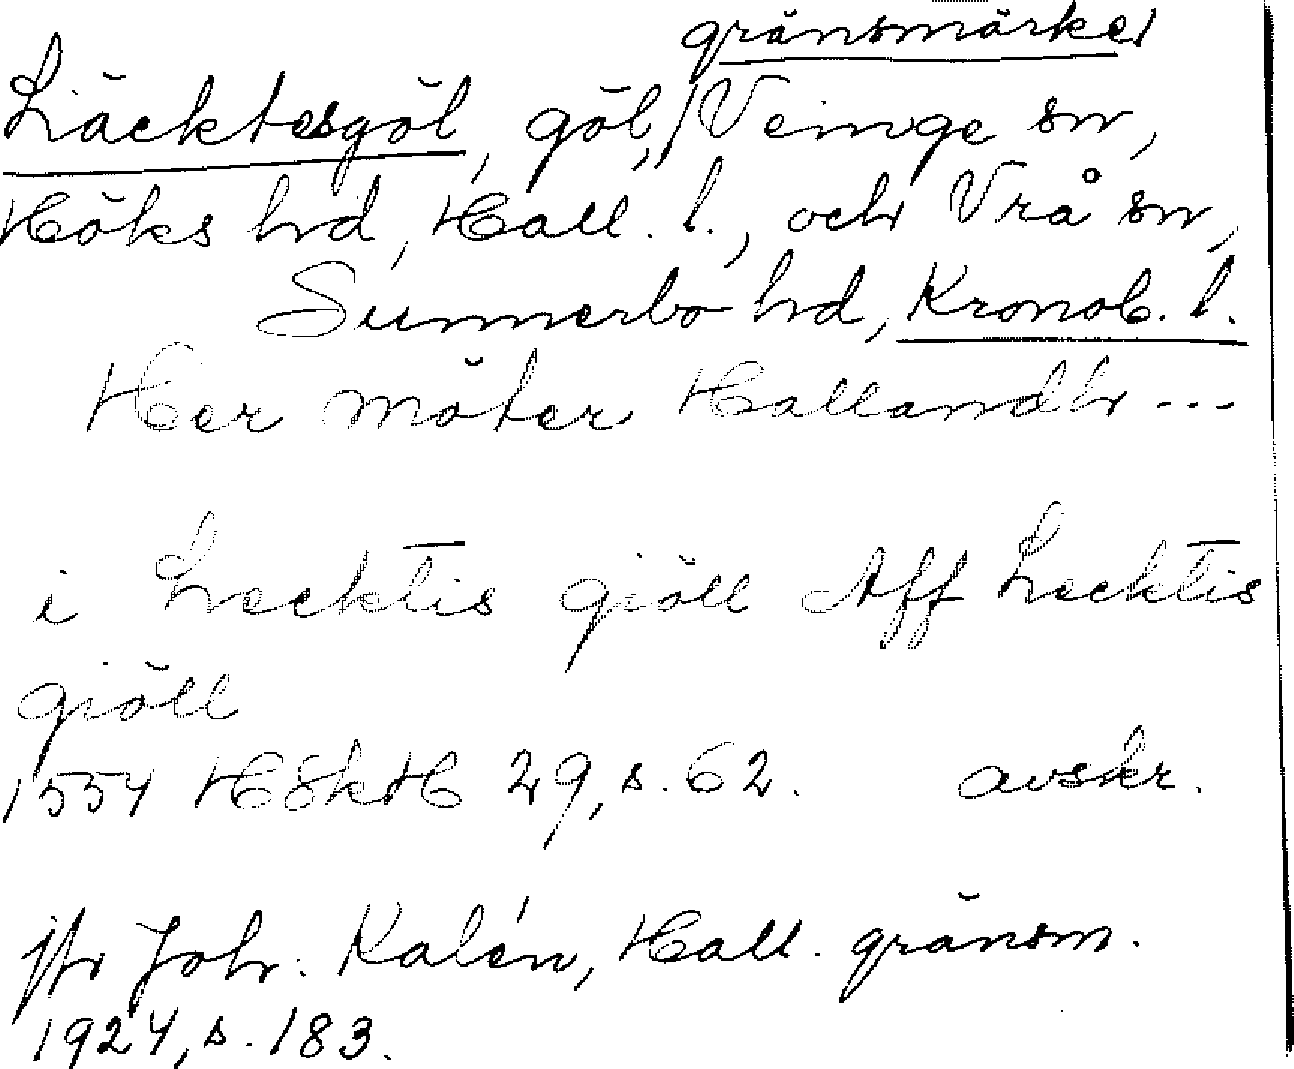 gränsmärke
Läcktesgöl, göl, / Veinge sn,
Höks hd, Hall. l., och Vrå sn,
Sunnerbo hd, Kronob. l.
Her möter Hallandh ---
i Lecktis giöll Aff Lecktis
giöll
1554 HSkH 29, s. 62. avskr.
jfr Joh. Kalén, Hall. gränsm.
1924, s. 183.